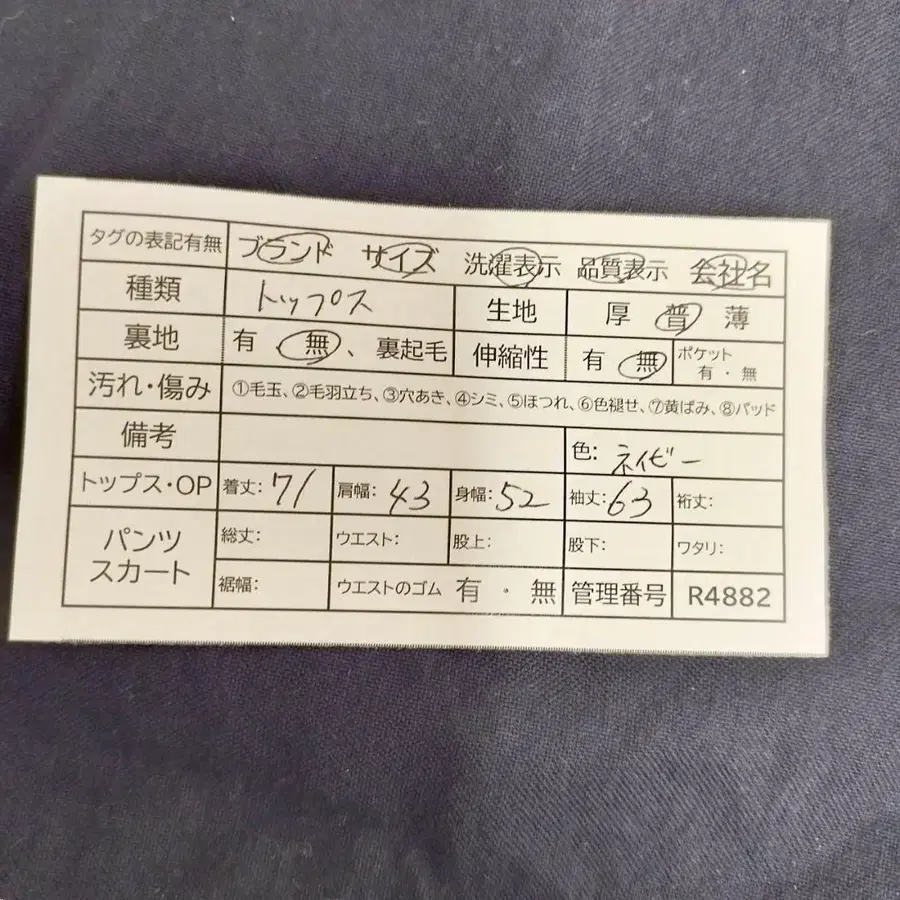 タグの表記有無 ブランド サイズ 洗濯表示 品質表示 会社名
種類 トップス 生地 厚 普 薄
裏地 有 無、裏起毛 伸縮性 有 無 ポケット 有・無
汚れ・傷み ①毛玉、②毛羽立ち、③穴あき、④シミ、⑤ほつれ、⑥色褪せ、⑦黄ばみ、⑧パッド
備考 色: ネイビー
トップス・OP 着丈: 71 肩幅: 43 身幅: 52 袖丈: 63 裄丈:
パンツ スカート 総丈: ウエスト: 股上: 股下: ワタリ:
裾幅: ウエストのゴム 有・無 管理番号 R4882